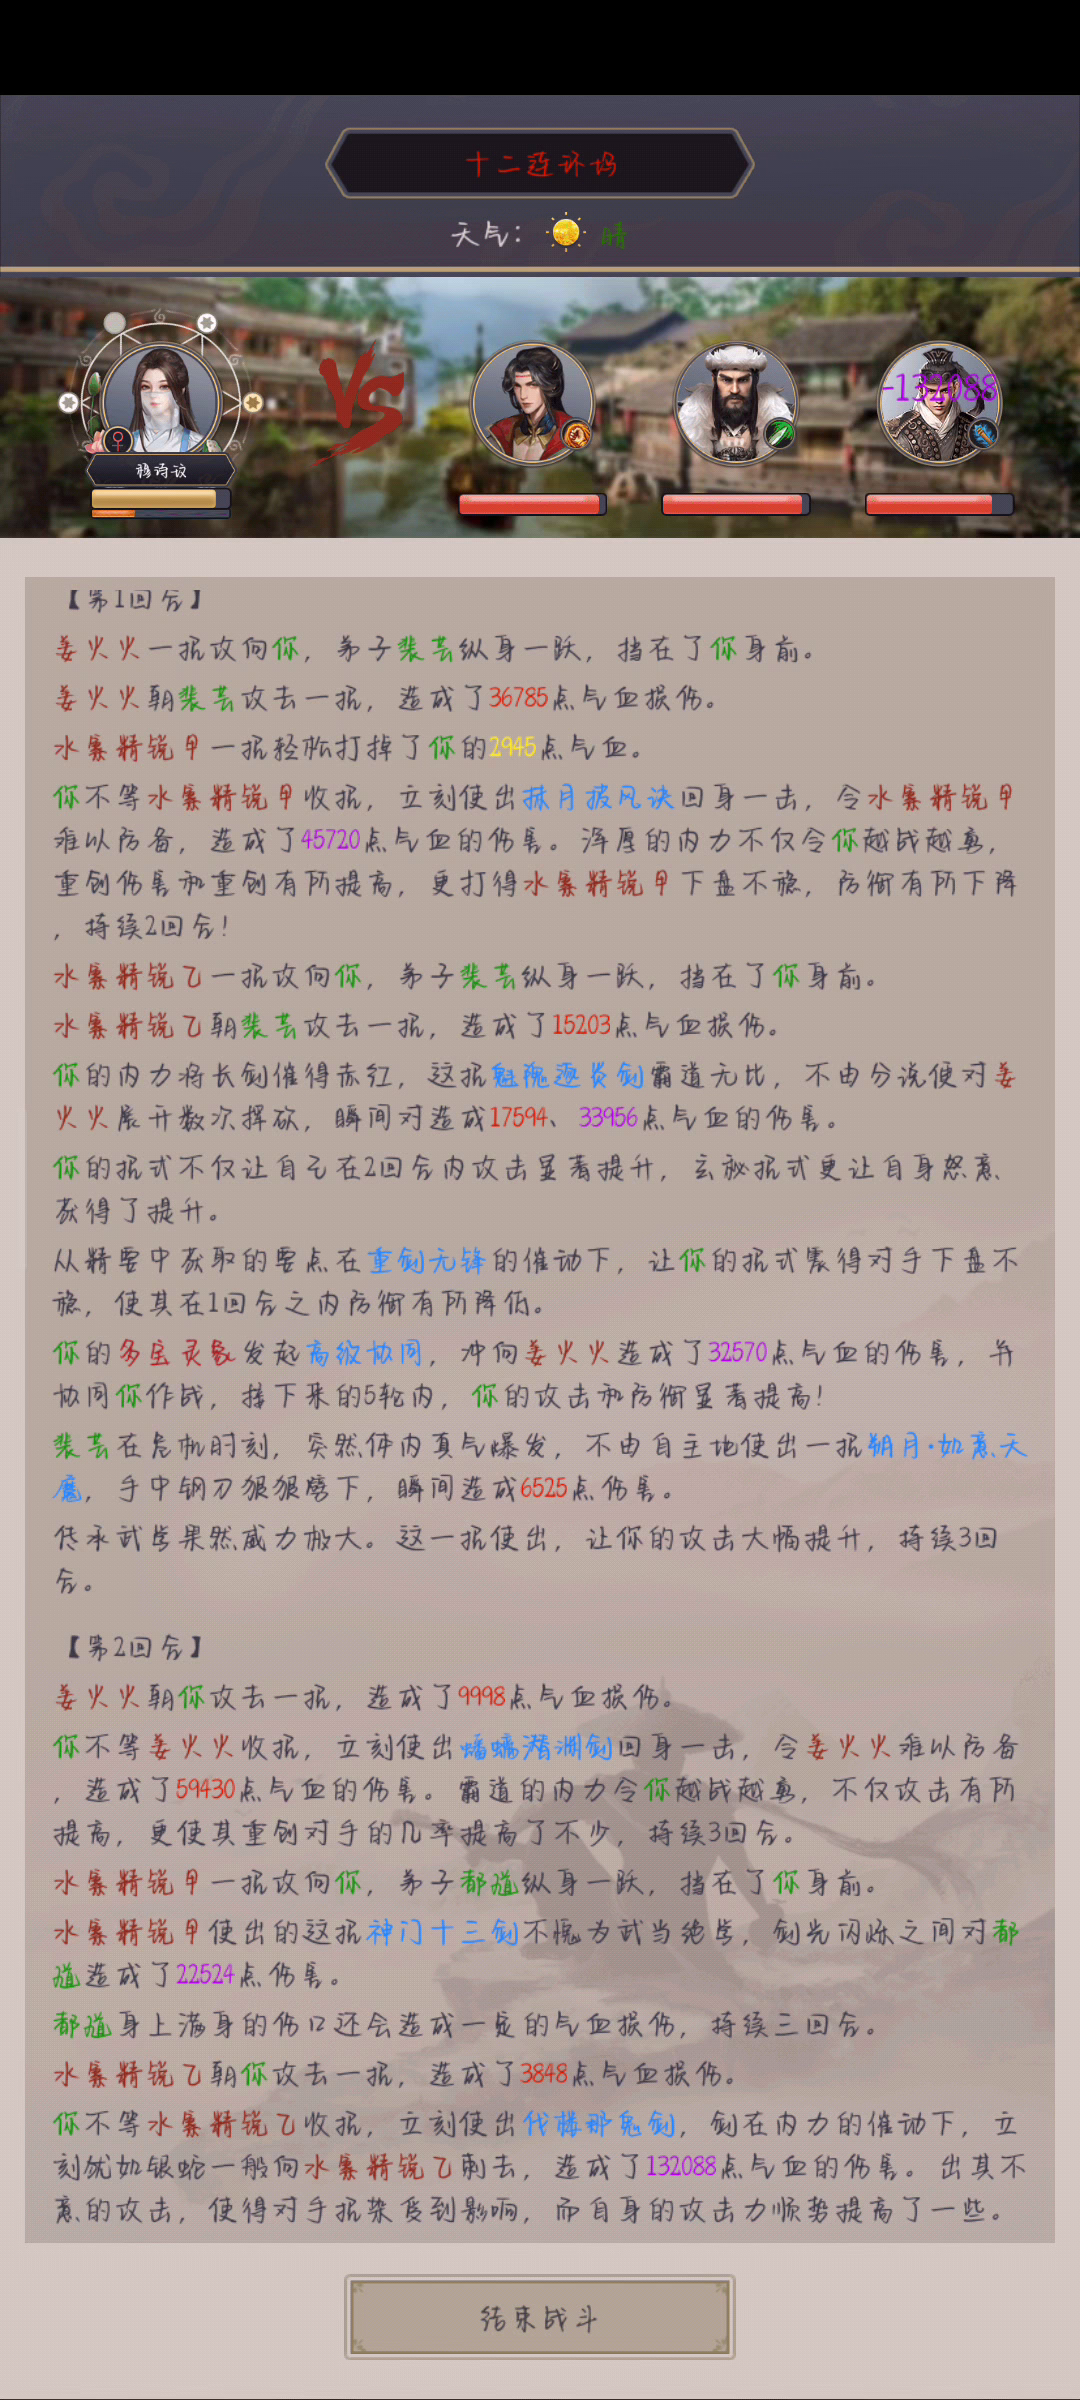 十二连环坞
天气: 晴
VS
-132088
【第1回合】
姜火火一招攻向你，弟子裴芸纵身一跃，挡在了你身前。
姜火火朝裴芸攻去一招，造成了36785点气血损伤。
水寨精锐甲一招轻松打掉了你的2945点气血。
你不等水寨精锐甲收招，立刻使出抹月披风诀回身一击，令水寨精锐甲
难以防备，造成了45720点气血的伤害。浑厚的内力不仅令你越战越勇，
重创伤害和重创有所提高，更打得水寨精锐甲下盘不稳，防御有所下降
，持续2回合！
水寨精锐乙一招攻向你，弟子裴芸纵身一跃，挡在了你身前。
水寨精锐乙朝裴芸攻去一招，造成了15203点气血损伤。
你的内力将长剑催得赤红，这招魅魄逐炎剑霸道无比，不由分说便对姜
火火展开数次挥砍，瞬间对造成17594、33956点气血的伤害。
你的招式不仅让自己在2回合内攻击显著提升，玄秘招式更让自身怒意
获得了提升。
从精要中获取的要点在重剑无锋的催动下，让你的招式震得对手下盘不
稳，使其在1回合之内防御有所降低。
你的多宝灵象发起高级协同，冲向姜火火造成了32570点气血的伤害，并
协同你作战，接下来的5轮内，你的攻击和防御显著提高！
裴芸在危机时刻，突然体内真气爆发，不由自主地使出一招朔月·如意天
魔，手中钢刀狠狠劈下，瞬间造成6525点伤害。
传承武学果然威力极大。这一招使出，让你的攻击大幅提升，持续3回
合。
【第2回合】
姜火火朝你攻去一招，造成了9998点气血损伤。
你不等姜火火收招，立刻使出蟠螭潜渊剑回身一击，令姜火火难以防备
，造成了59430点气血的伤害。霸道的内力令你越战越勇，不仅攻击有所
提高，更使其重创对手的几率提高了不少，持续3回合。
水寨精锐甲一招攻向你，弟子都道纵身一跃，挡在了你身前。
水寨精锐甲使出的这招神门十三剑不愧为武当绝学，剑光闪烁之间对都
道造成了22524点伤害。
都道身上满身的伤口还会造成一定的气血损伤，持续三回合。
水寨精锐乙朝你攻去一招，造成了3848点气血损伤。
你不等水寨精锐乙收招，立刻使出代楼那鬼剑，剑在内力的催动下，立
刻犹如银蛇一般向水寨精锐乙刺去，造成了132088点气血的伤害。出其不
意的攻击，使得对手招架受到影响，而自身的攻击力顺势提高了一些。
结束战斗